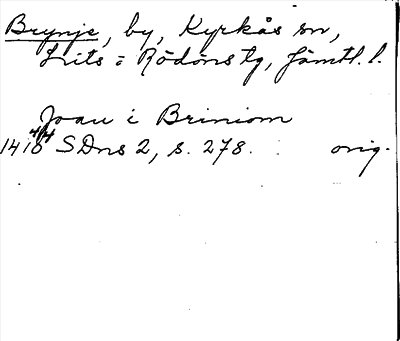 Brynje, by, Kyrkås sn,
Lits o Rödöns tg, Jämtl. l.
Joan i Briniom
1410 4/4 SDns 2, s. 278. orig.